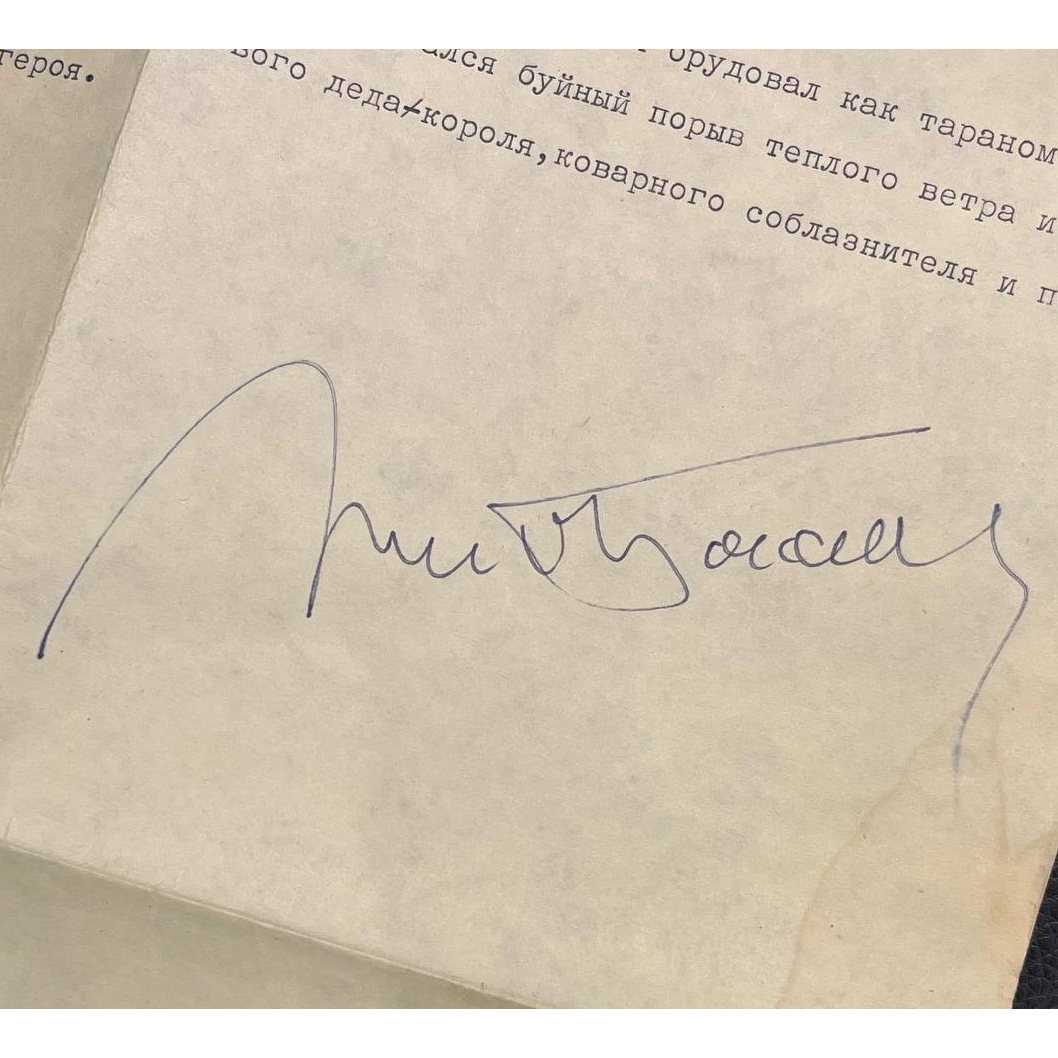 героя.
орудовал как тараном
ался буйный порыв теплого ветра и
вого деда-короля, коварного соблазнителя и п